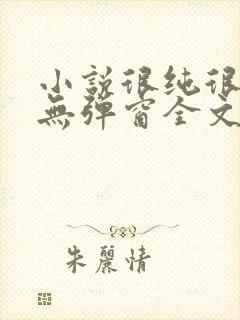 小説很纯很
無彈窗全文
朱麗情